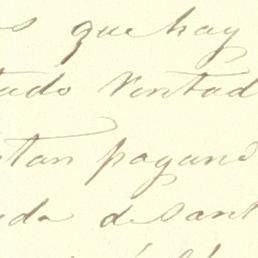 s que hay
tudo Rentad
stan pagand
nda de sant